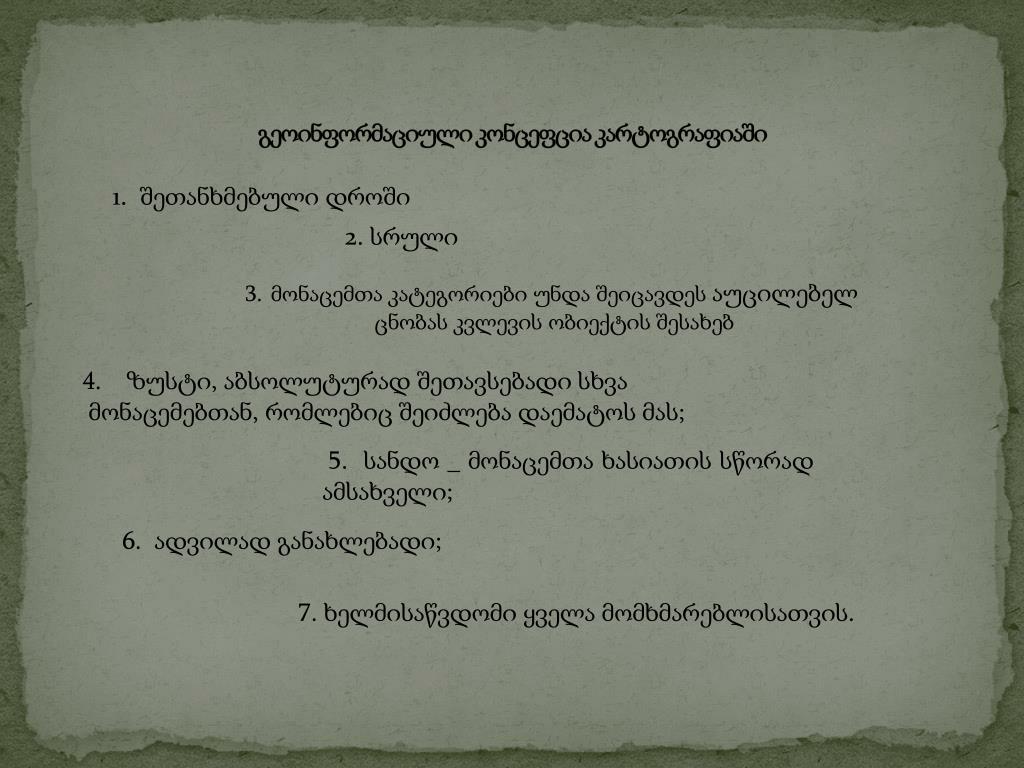 გეოინფორმაციული კონცეფცია კარტოგრაფიაში
1. შეთანხმებული დროში
2. სრული
3. მონაცემთა კატეგორიები უნდა შეიცავდეს აუცილებელ
ცნობას კვლევის ობიექტის შესახებ
4. ზუსტი, აბსოლუტურად შეთავსებადი სხვა
მონაცემებთან, რომლებიც შეიძლება დაემატოს მას;
5. სანდო _ მონაცემთა ხასიათის სწორად
ამსახველი;
6. ადვილად განახლებადი;
7. ხელმისაწვდომი ყველა მომხმარებლისათვის.